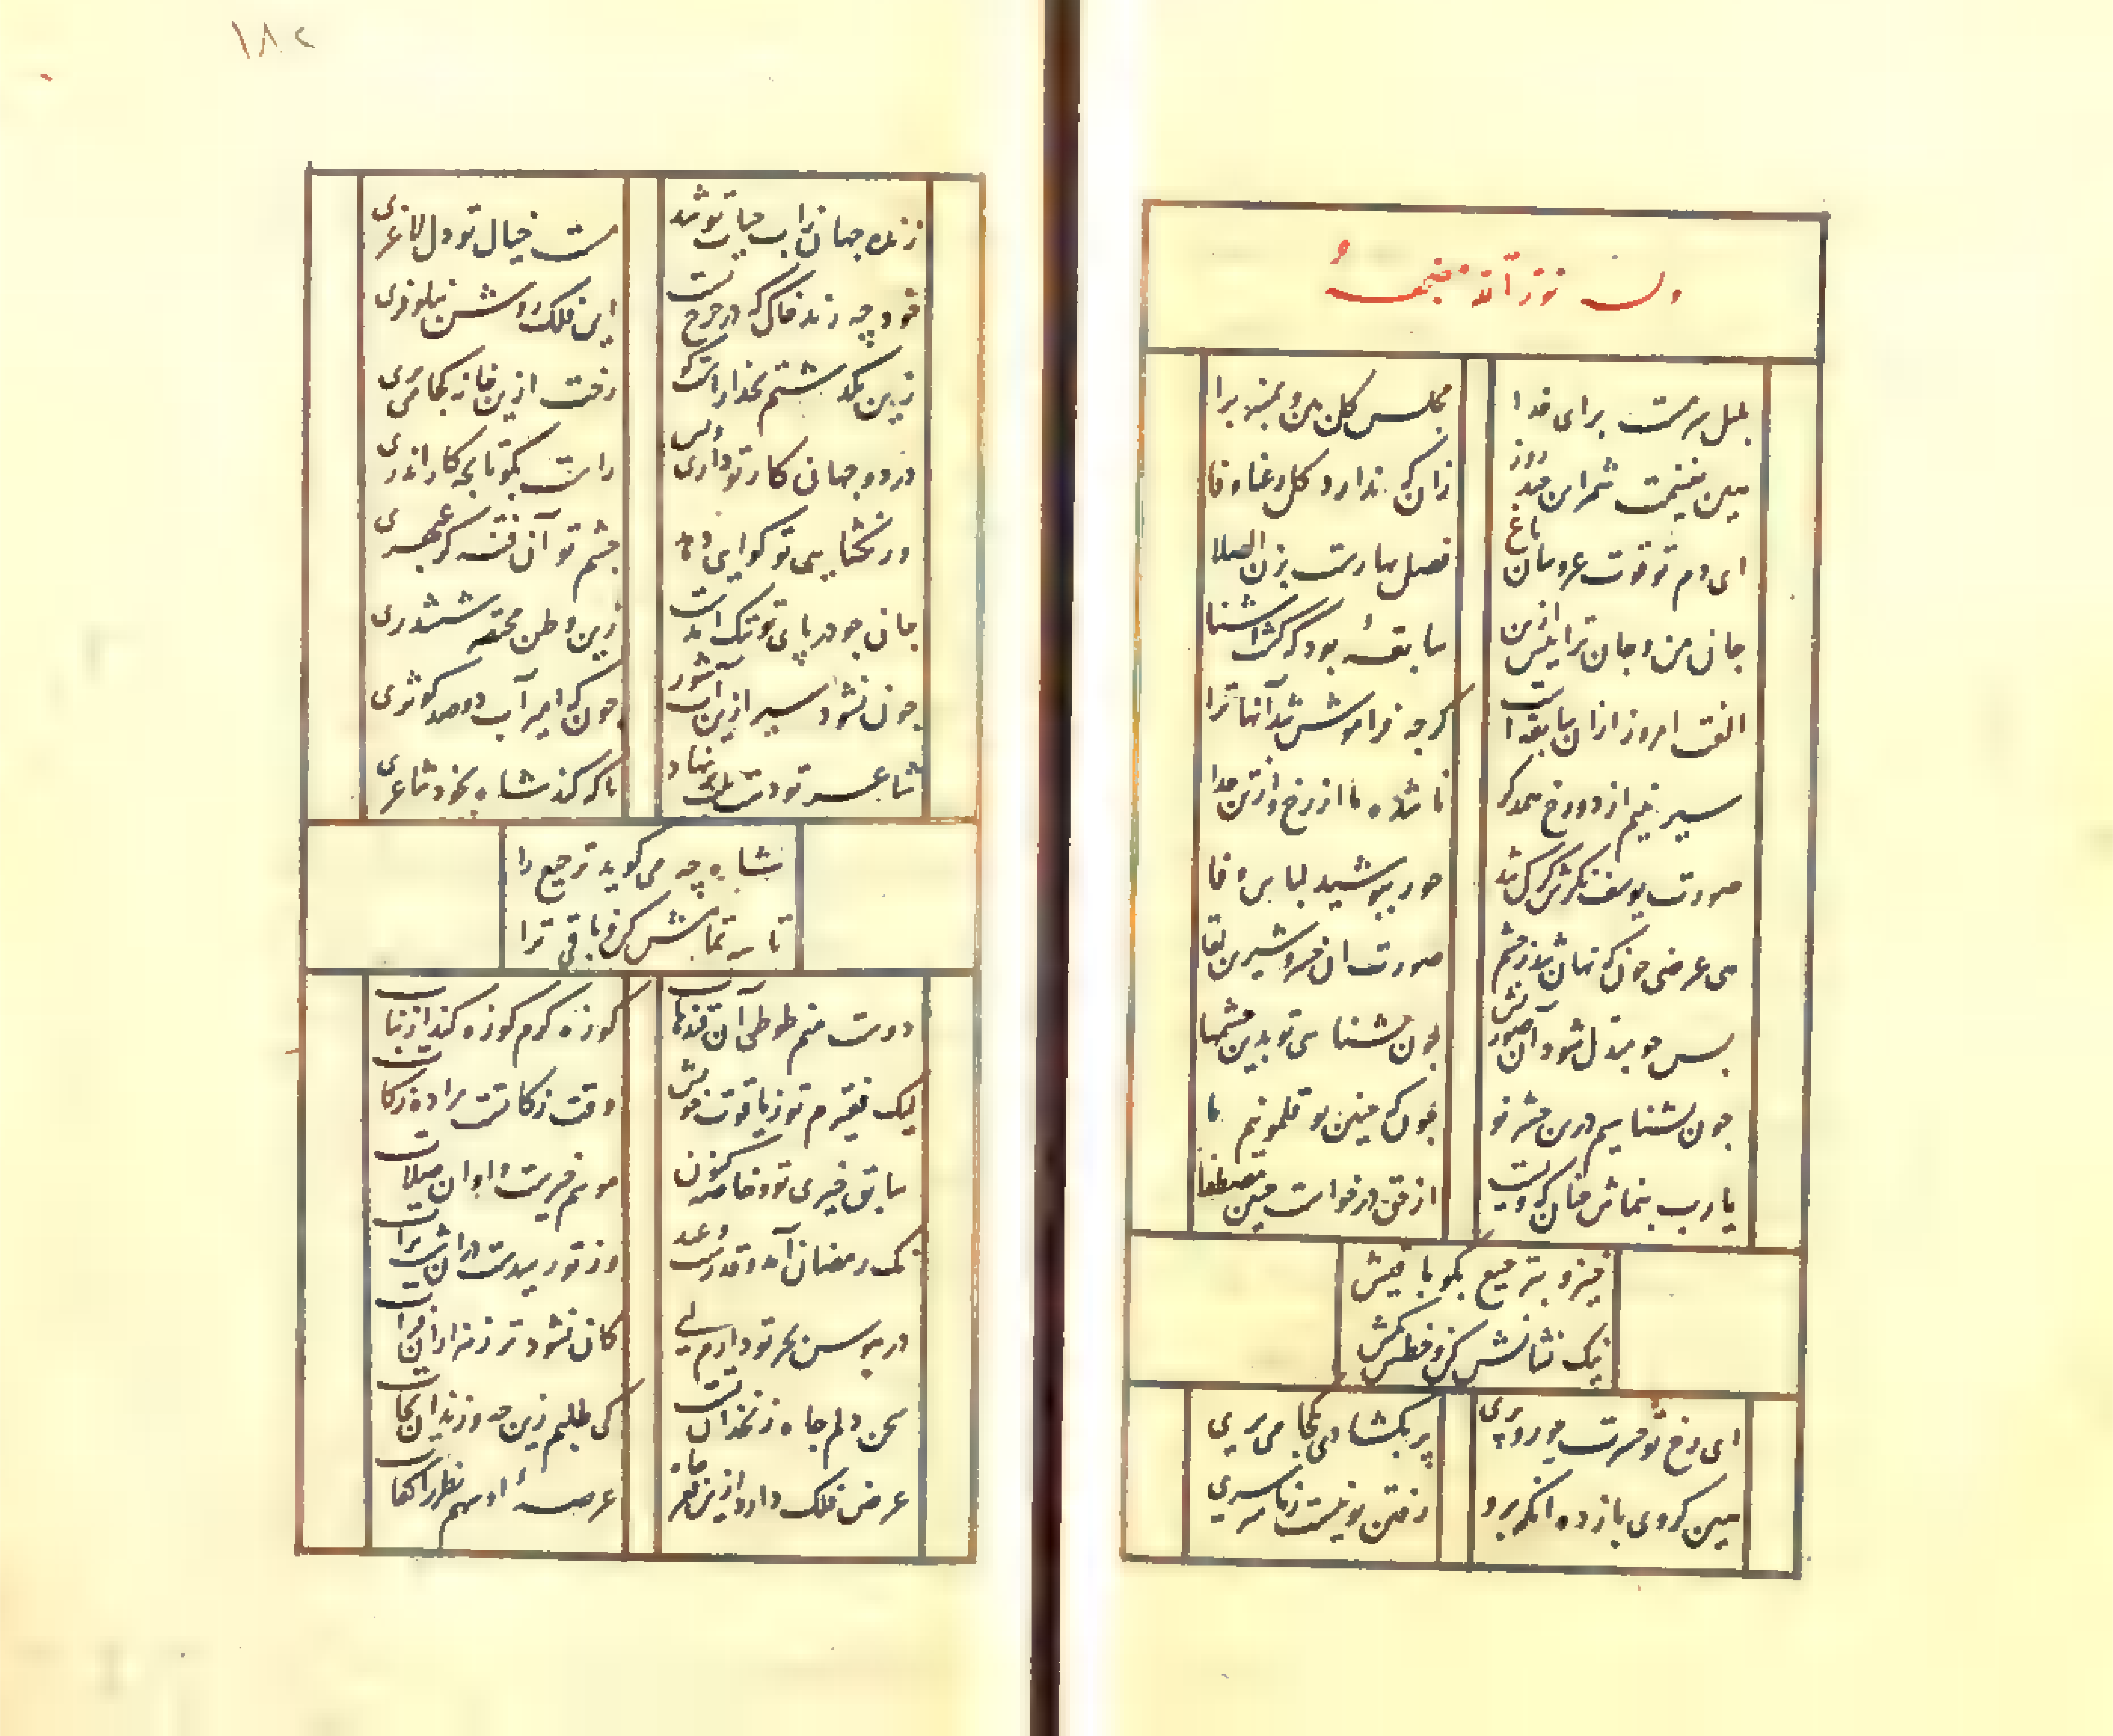 وله نور الله مضجعه
بلبل سرمست برای خدا
مجلس گل بین و بمنبر برآ
هین بغنیمت شمر این روز چند
زان که ندارد گل رعنا وفا
ای دم تو قوت عروسان باغ
فصل بهارست بزن الصلا
جان من و جان ترا پیش ازین
سابقهٔ بود که گشت آشنا
الفت امروز ازان سابقه است
گرچه فراموش شد آنها ترا
سیر نبینیم از دو رخ همدگر
نا شده ما از رخ و از تن جدا
صورت یوسف بیکی گرگ شد
چون بپوشید لباس وفا
می عرضی چون که نهان شد ز چشم
صورت آن خسرو شیرین لقا
پس چو مبدل شود آن صورتش
چون بشناسی تو بدین چشمها
چون بشناسیم درین حشر نو
چون که چنین بوقلمونیم ما
یارب بنماش چنان که ویست
از حق درخواست چنین مصطفا
خیز و بترجیع بگو باقیش
نیک نشانش کن و خطی کش
ای رخ تو حسرت حور و پری
پر بگشادی بکجا می پری
هین گروی باز ده آنگه برو
رفتن تو نیست زما سرسری
زنده جهان زاب حیات تو شد
مست خیال تو دل لاغری
خود چه زند خاک که در چرخ تست
این فلک روشن نیلوفری
زین بگذشتم بخدا راست گو
رخت ازین خانه کجا می بری
در دو جهان کار تو داری و بس
راست بگو تا بچه کار اندری
ور نگشایی تو گوایی دهد
چشم تو آن فتنه گر عبهری
جان چو دریای تو تنگ آمدست
زین وطن محتقر ششدری
چون نشود سیر ازین آب شور
چون که امیر آب دو صد کوثری
شاعر تو دست دهان بر نهاد
تا که کند شاه بخود شاعری
شاه چه می گوید ترجیع را
تا سه تماش کن و باقی ترا
دوست منم طوطی آن قندهات
کوزه گرم کوزه کند از نبات
لیک فقیرم تو ز یاقوت خویش
وقت زکاتست مرا ده زکات
سابق خیری تو و خاصه کنون
موسم خیرست و اوان صلات
نک رمضان آمد و قدرست و عید
وز تو رسیدست دران شب برات
در هوس بحر تو دارم لبی
کان نشود تر ز هزاران فرات
سجن دلم چاه زنخدان تست
کی طلبم زین چه و زندان نجات
عرض فلک دارد از این قعر چاه
عرصهٔ او بیهم نظر را کفات
۱۸۲